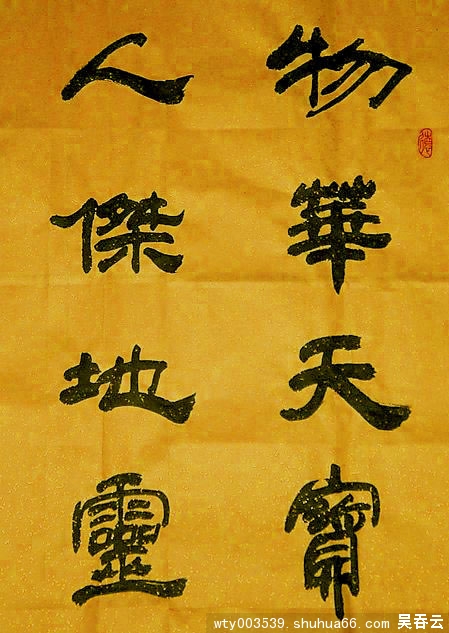 物華天寳
人傑地靈
wty003539. shuhua66. com 吴吞云